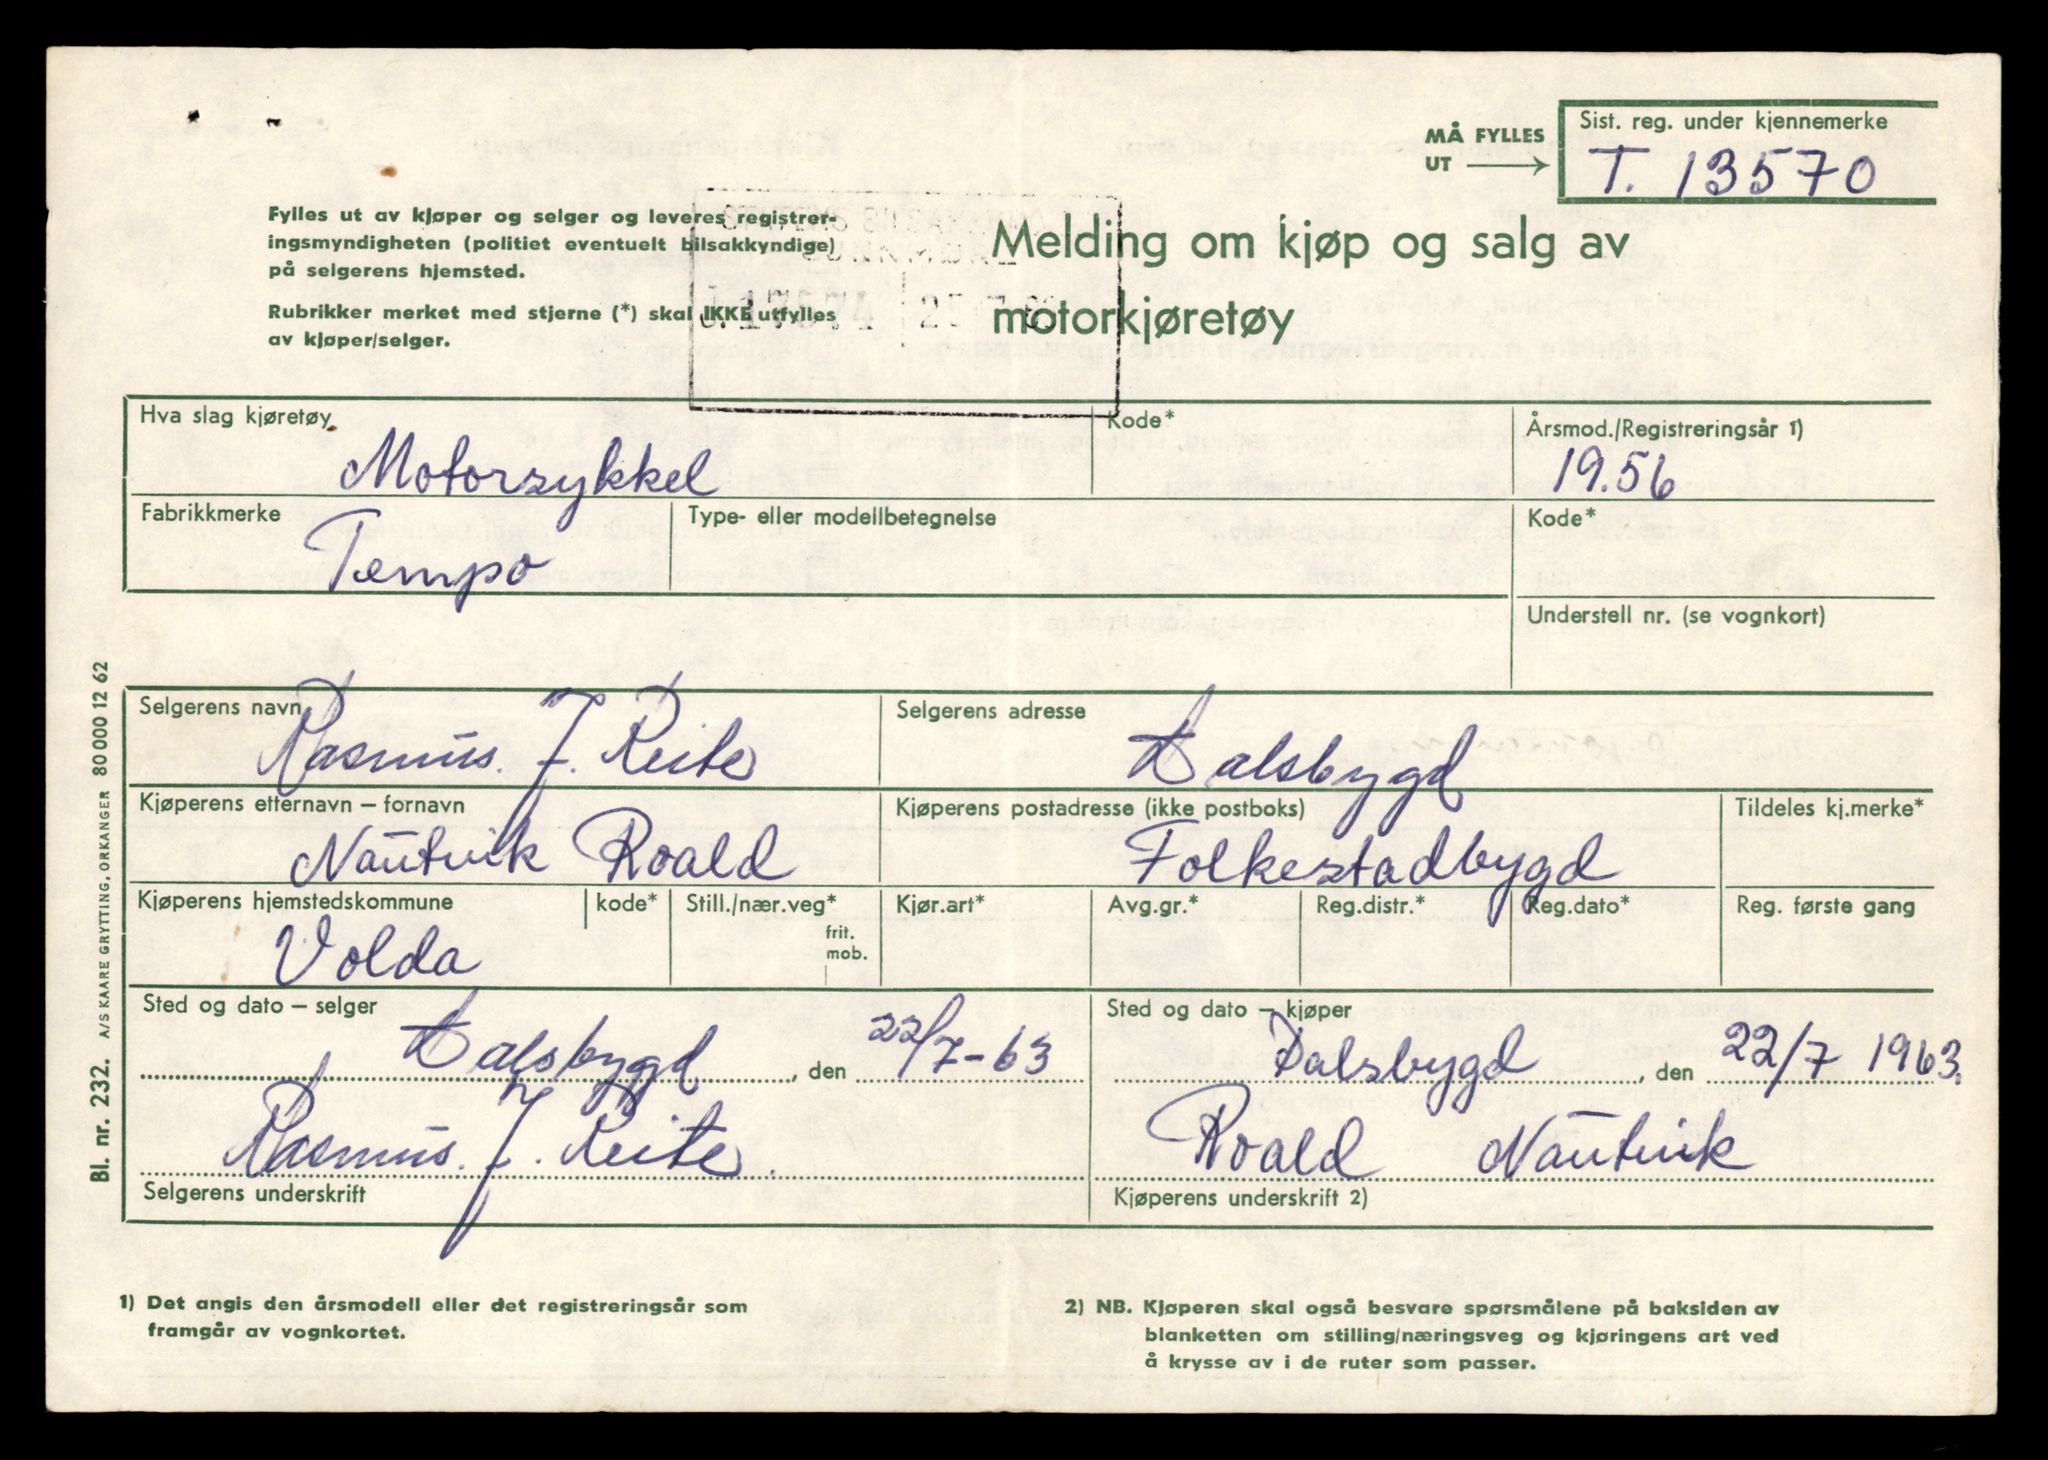 MÅ FYLLES
UT
Sist. reg. under kjennemerke
T. 13570
Fylles ut av kjøper og selger og leveres registrer-
ingsmyndigheten (politiet eventuelt bilsakkyndige)
på selgerens hjemsted.
Rubrikker merket med stjerne (*) skal IKKE utfylles
av kjøper/selger.
Melding om kjøp og salg av
motorkjøretøy
Hva slag kjøretøy
Motorsykkel
Kode*
Årsmod./Registreringsår 1)
19.56
Fabrikkmerke
Tempo
Type- eller modellbetegnelse
Kode*
Understell nr. (se vognkort)
Selgerens navn
Rasmus. J. Reite
Selgerens adresse
Dalsbygd
Kjøperens etternavn – fornavn
Nautvik Roald
Kjøperens postadresse (ikke postboks)
Folkestadbygd
Tildeles kj.merke*
Kjøperens hjemstedskommune
Volda
kode*
Still./nær.veg*
frit.
mob.
Kjør.art*
Avg.gr.*
Reg.distr.*
Reg.dato*
Reg. første gang
Sted og dato – selger
Dalsbygd , den 22/7-63
Rasmus. J. Reite.
Selgerens underskrift
Sted og dato – kjøper
Dalsbygd , den 22/7 1963.
Roald Nautvik
Kjøperens underskrift 2)
1) Det angis den årsmodell eller det registreringsår som
framgår av vognkortet.
2) NB. Kjøperen skal også besvare spørsmålene på baksiden av
blanketten om stilling/næringsveg og kjøringens art ved
å krysse av i de ruter som passer.
Bl. nr. 232. A/S KAARE GRYTTING, ORKANGER 80 000 12 62